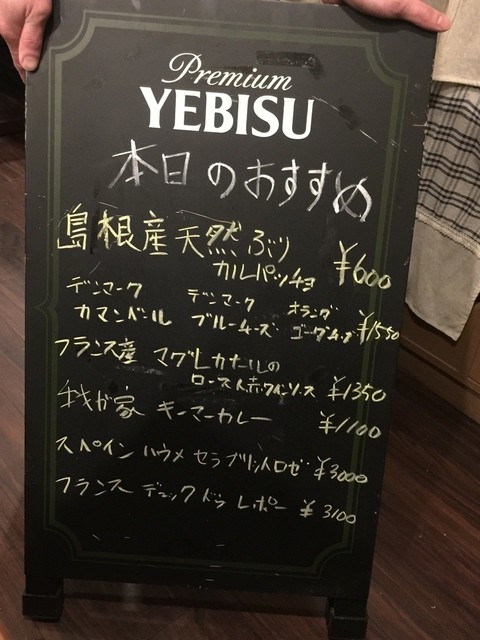 Premium
YEBISU
本日のおすすめ
島根産天然ぶり
カルパッチョ ¥600
デンマーク デンマーク オランダ
カマンベール ブルーチーズ ゴーダチーズ ¥1550
フランス産 マグレカナールの
ロースト赤ワインソース ¥1350
我が家 キーマカレー ¥1100
スペイン ハウメ セラブリュットロゼ ¥3000
フランス デュック ドゥ レポー ¥3100